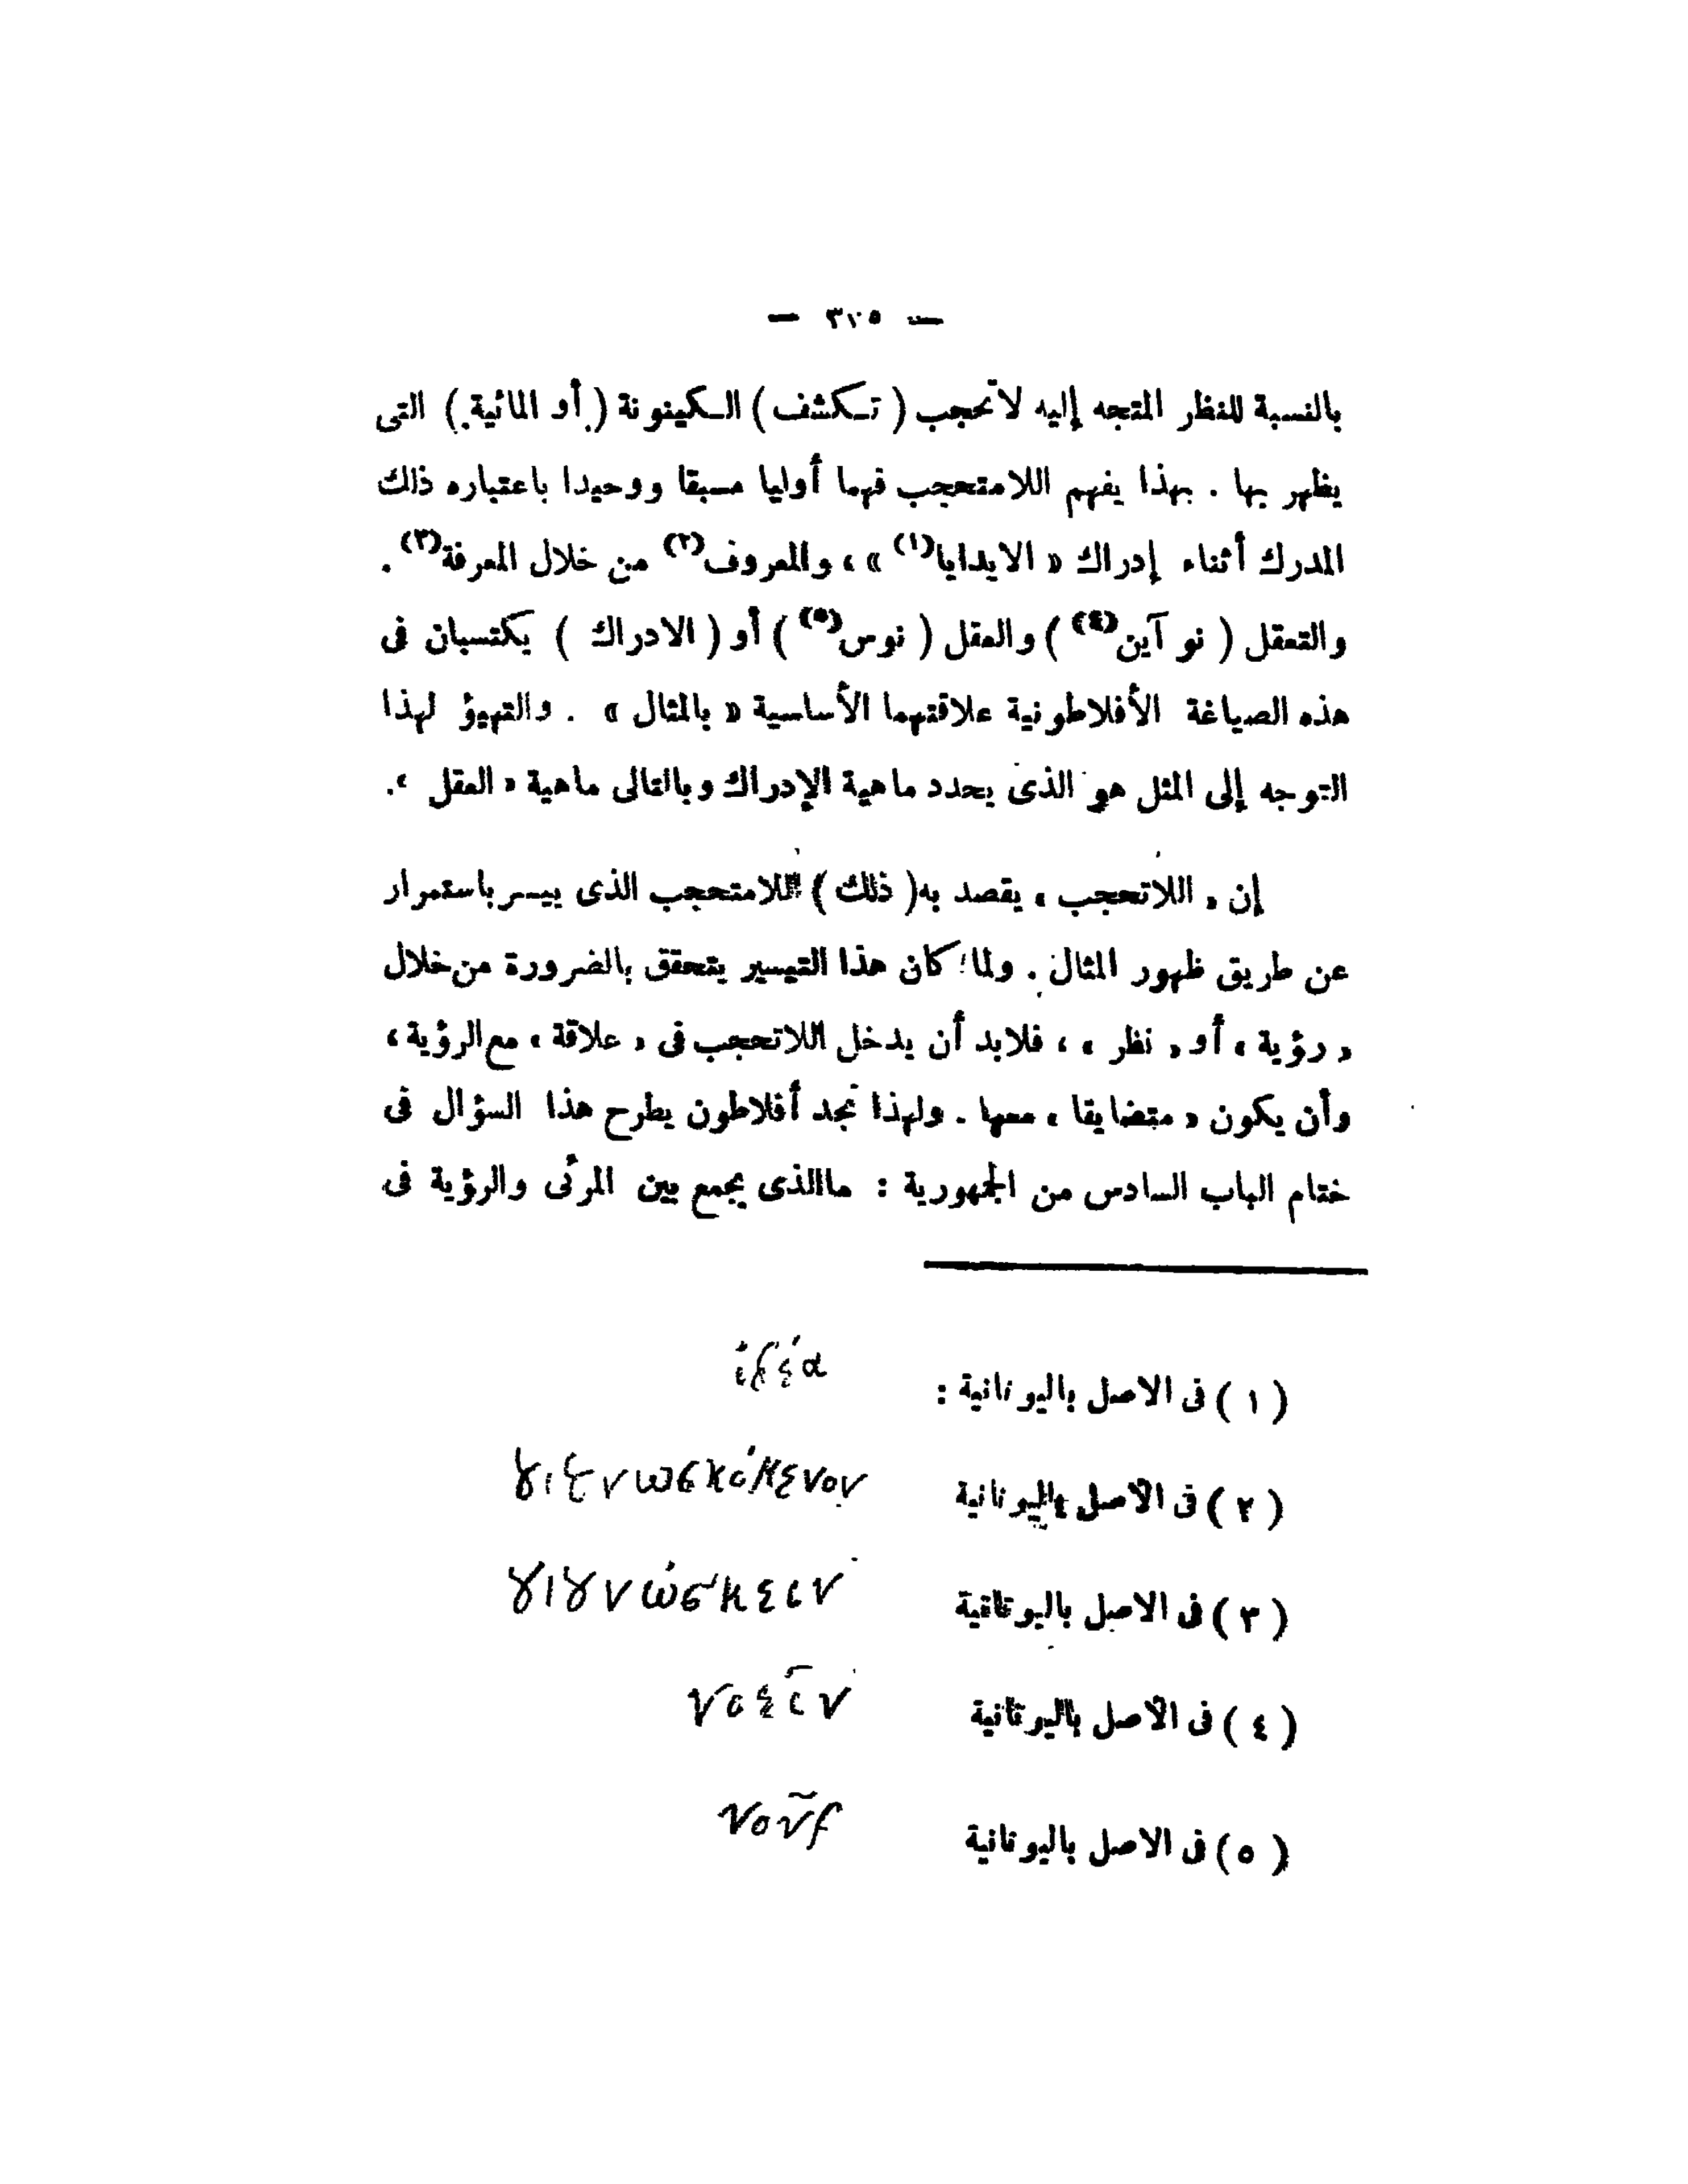 — ٣٢٥ —
بالنسبة للنظر المتجه إليه لاتحجب ( تـكشف ) الـكينونة ( أو المائية ) التى
يظهر بها . بهذا يفهم اللامتحجب فهما أوليا مسبقا ووحيدا باعتباره ذلك
المدرك أثناء إدراك « الايدايا(١) » ، والمعروف(٢) من خلال المعرفة(٣) .
والتعقل ( نو آين(٤) ) والعقل ( نوس(٥) ) أو ( الادراك ) يكتسبان فى
هذه الصياغة الأفلاطونية علاقتهما الأساسية « بالمثال » . والتهيؤ لهذا
التوجه إلى المثل هو الذى يحدد ماهية الإدراك وبالتالى ماهية « العقل » .
إن « اللاتحجب » يقصد به ( ذلك ) اللامتحجب الذى ييسر باستمرار
عن طريق ظهور المثال . ولما كان هذا التيسير يتحقق بالضرورة من خلال
« رؤية » أو « نظر » ، فلابد أن يدخل اللاتحجب فى « علاقة » مع الرؤية ،
وأن يكون « متضايقا » معها . ولهذا نجد أفلاطون يطرح هذا السؤال فى
ختام الباب السادس من الجمهورية : ماالذى يجمع بين المرئى والرؤية فى
( ١ ) فى الاصل باليونانية : ἰδέα
( ٢ ) فى الاصل باليونانية γιγνωσκόμενον
( ٣ ) فى الاصل باليونانية γιγνώσκειν
( ٤ ) فى الاصل باليونانية νοεῖν
( ٥ ) فى الاصل باليونانية νοῦς